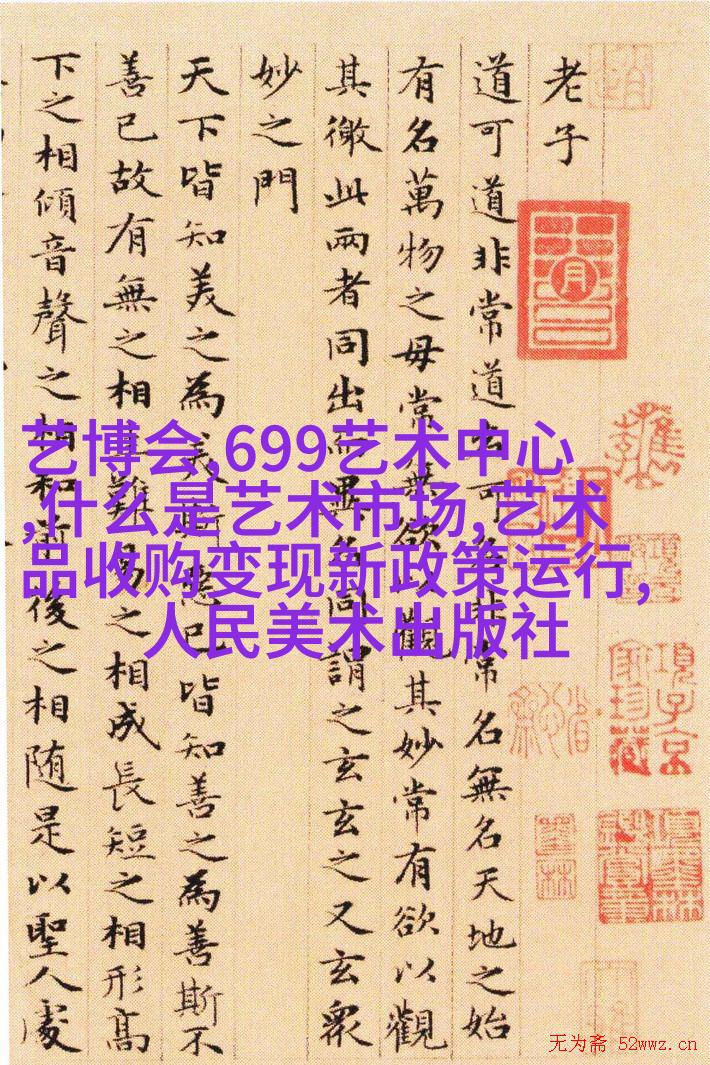 老子
道可道非常道名可名非常名無名天地之始
有名萬物之母常無欲以觀其妙常有欲以觀
其徼此兩者同出而異名同謂之玄玄之又玄眾
妙之門
天下皆知美之為美斯惡已皆知善之為善斯不
善已故有無之相生難易之相成長短之相形高
下之相傾音聲之相和前後之相随是以聖人處
項子京家珍藏
艺博会,699艺术中心
,什么是艺术市场,艺术
品收购变现新政策运行,
人民美术出版社
无为斋 52wwz.cn